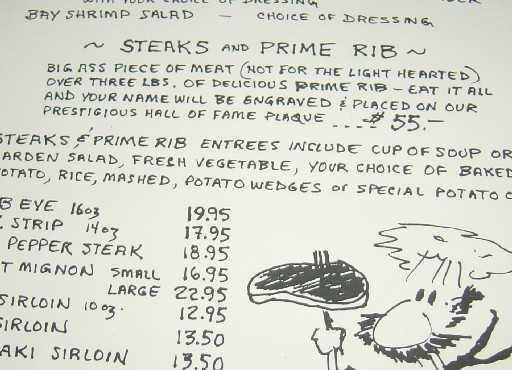 WITH YOUR CHOICE OF DRESSING
BAY SHRIMP SALAD — CHOICE OF DRESSING
~ STEAKS AND PRIME RIB ~
BIG ASS PIECE OF MEAT (NOT FOR THE LIGHT HEARTED)
OVER THREE LBS. OF DELICIOUS PRIME RIB - EAT IT ALL
AND YOUR NAME WILL BE ENGRAVED & PLACED ON OUR
PRESTIGIOUS HALL OF FAME PLAQUE .... $55.-
STEAKS & PRIME RIB ENTREES INCLUDE CUP OF SOUP OR
ARDEN SALAD, FRESH VEGETABLE, YOUR CHOICE OF BAKED
OTATO, RICE, MASHED, POTATO WEDGES or SPECIAL POTATO O
B EYE 16oz 19.95
STRIP 14oz 17.95
PEPPER STEAK 18.95
T MIGNON SMALL 16.95
LARGE 22.95
SIRLOIN 10oz. 12.95
SIRLOIN 13.50
AKI SIRLOIN 13.50